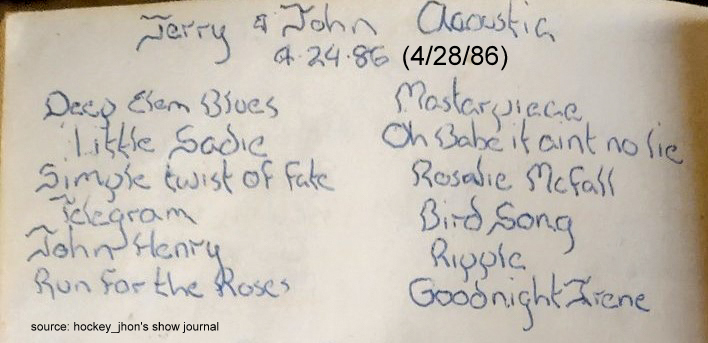 Jerry & John Acoustic
4·24·86 (4/28/86)
Deep Elem Blues
Little Sadie
Simple twist of fate
Telegram
John Henry
Run for the Roses
Mastarpiece
Oh Babe it aint no lie
Rosalie McFall
Bird Song
Ripple
Goodnight Irene
source: hockey_jhon's show journal